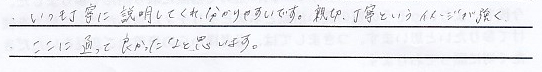 ・いつも丁寧に説明してくれ、分かりやすいです。親切、丁寧というイメージが強く
ここに通って良かったなと思います。